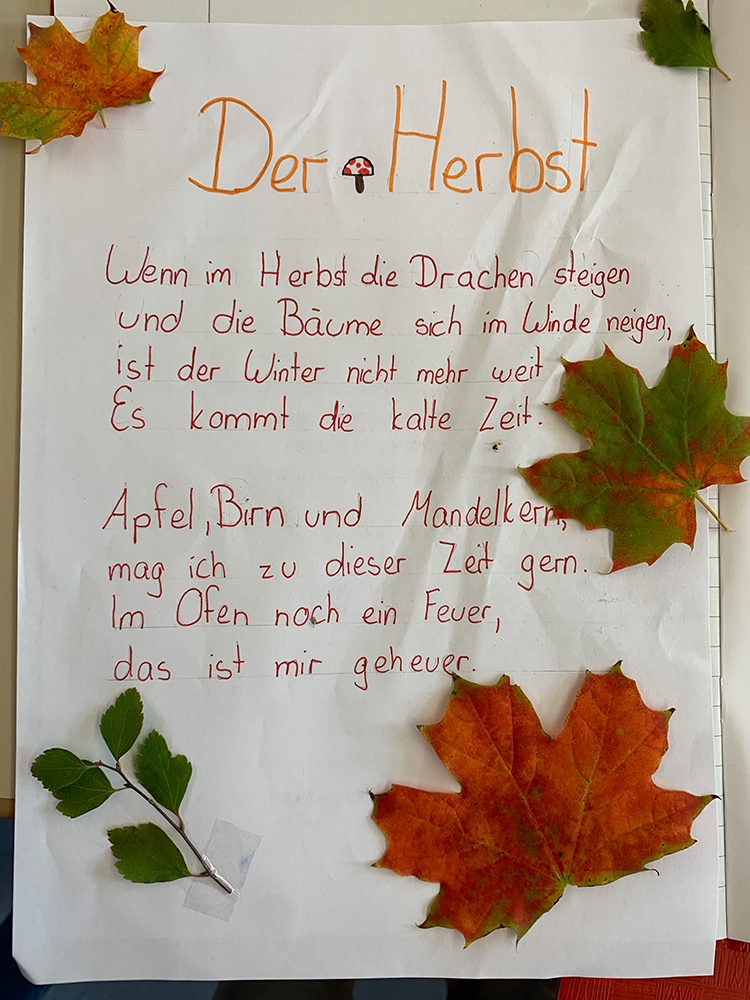 Der Herbst
Wenn im Herbst die Drachen steigen
und die Bäume sich im Winde neigen,
ist der Winter nicht mehr weit
Es kommt die kalte Zeit.
Apfel, Birn und Mandelkern,
mag ich zu dieser Zeit gern.
Im Ofen noch ein Feuer,
das ist mir geheuer.